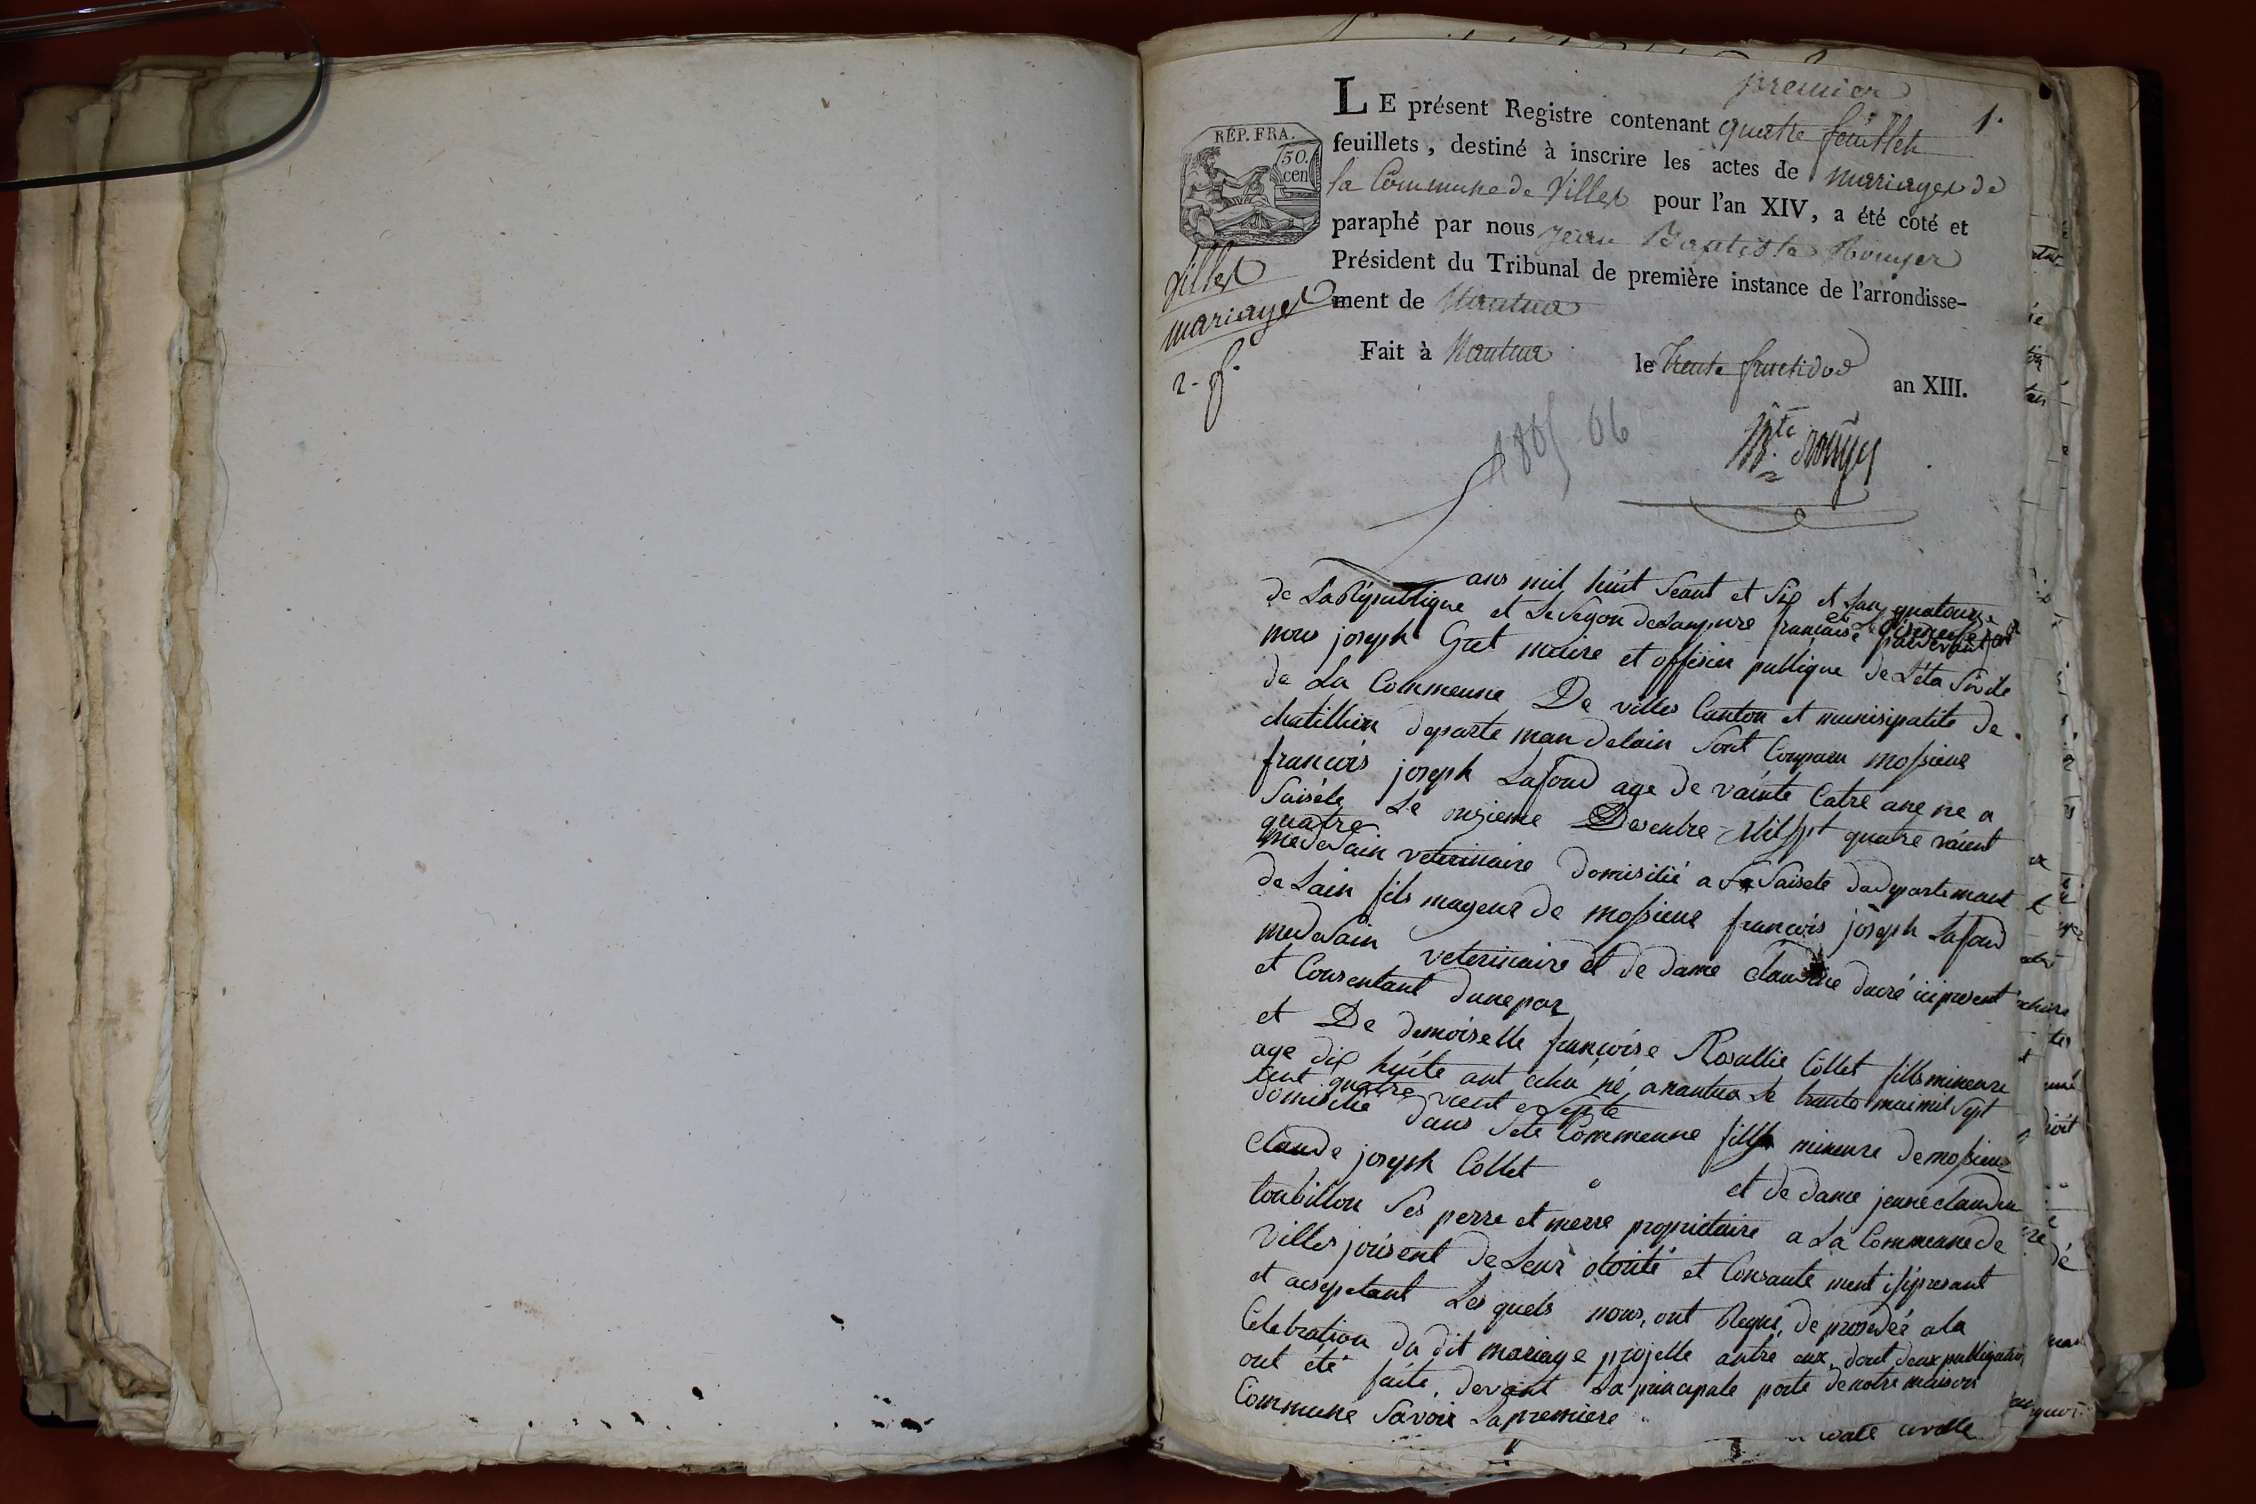 premier
1.
LE présent Registre contenant quatre feuillets
feuillets, destiné à inscrire les actes de mariages de
la Commune de Villes pour l'an XIV, a été coté et
paraphé par nous Jean Baptiste Rouyer
Président du Tribunal de première instance de l'arrondisse-
ment de Nantua
Fait à Nantua le trente fructidor an XIII.
RÉP. FRA.
50.
cen
Villes
mariages
2. f.
1805 06
Bte Rouyer
ans mil huit Seant et Six et Lan quatorze
de La Républigue et Le Segon de Lanpire francaise pardevant
nous joseph Gret maire et offisier publique de L'éta Sivile
de La Commeune De villes Canton et munisipalité de
chatillion departe man delain Sont Conparu mosieur
francois joseph Lafond age de vainte Catre ane ne a
Saisele Le onzieme Desenbre Mil spt quatre váient
quatre
medesain veterinaire domisilié a Saisele du departemant
de Lain fils mageur de mosieur francois joseph Lafond
medesain veterinaire et de dame claudine ducré ici present
et Consentant dune par
et De demoiselle francoise Rosallie Collet fille mineure
age dix huite ant echu né a nantua Le trante mai mil Sept
Sent quatre vient e Septe
domisilié dans Sete Commeune fille mineure de mosieur
Claude joseph Collet et de dame jeanne claudine
toubillon Ses perre et merre propriétaire a La Commeune de
Villes joüisent de Leur otorité et Consante ment isi presant
et aceptant Les quels nous, ont Requi, de prosedér a la
Celebration du dit mariage projetté antre eux, dont deux publigation
ont été faite, devant La principale porte de notre maison
Commune Savoir La premiere